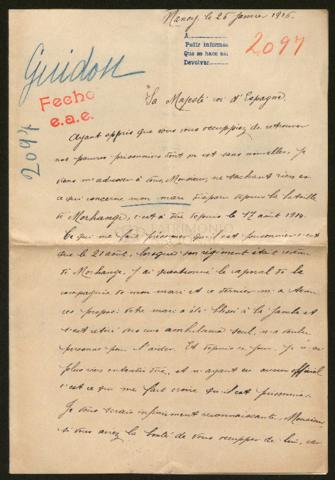 Nancy, le 26 Janvier 1916.
A
Pedir informes
Que se hace así
Devolver
2097
Guidon
Fecho
e.a.e.
2097
Sa Majesté roi d'Espagne.
Ayant appris que vous vous occupiez de retrouver
nos pauvres prisonniers dont on est sans nouvelles, je
viens m'adresser à vous, Monsieur, ne sachant rien en
ce qui concerne mon mari disparu depuis la bataille
de Morhange, c'est à dire depuis le 17 août 1914.
Ce qui me fait présumer qu'il est prisonnier c'est
que le 21 août, lorsque son régiment était
de Morhange, j'ai questionné le caporal de la
compagnie de mon mari et ce dernier m'a
ces propos: votre mari a été blessé à la jambe et
s'est retiré vers une ambulance seul, n'a voulu
personne pour l'aider. Et depuis ce jour je n'ai
plus rien entendu dire, et n'ayant eu aucun officiel
c'est ce qui me fait croire qu'il est prisonnier.
Je vous serais infiniment reconnaissante, Monsieur
si vous avez la bonté de vous occuper de lui, car